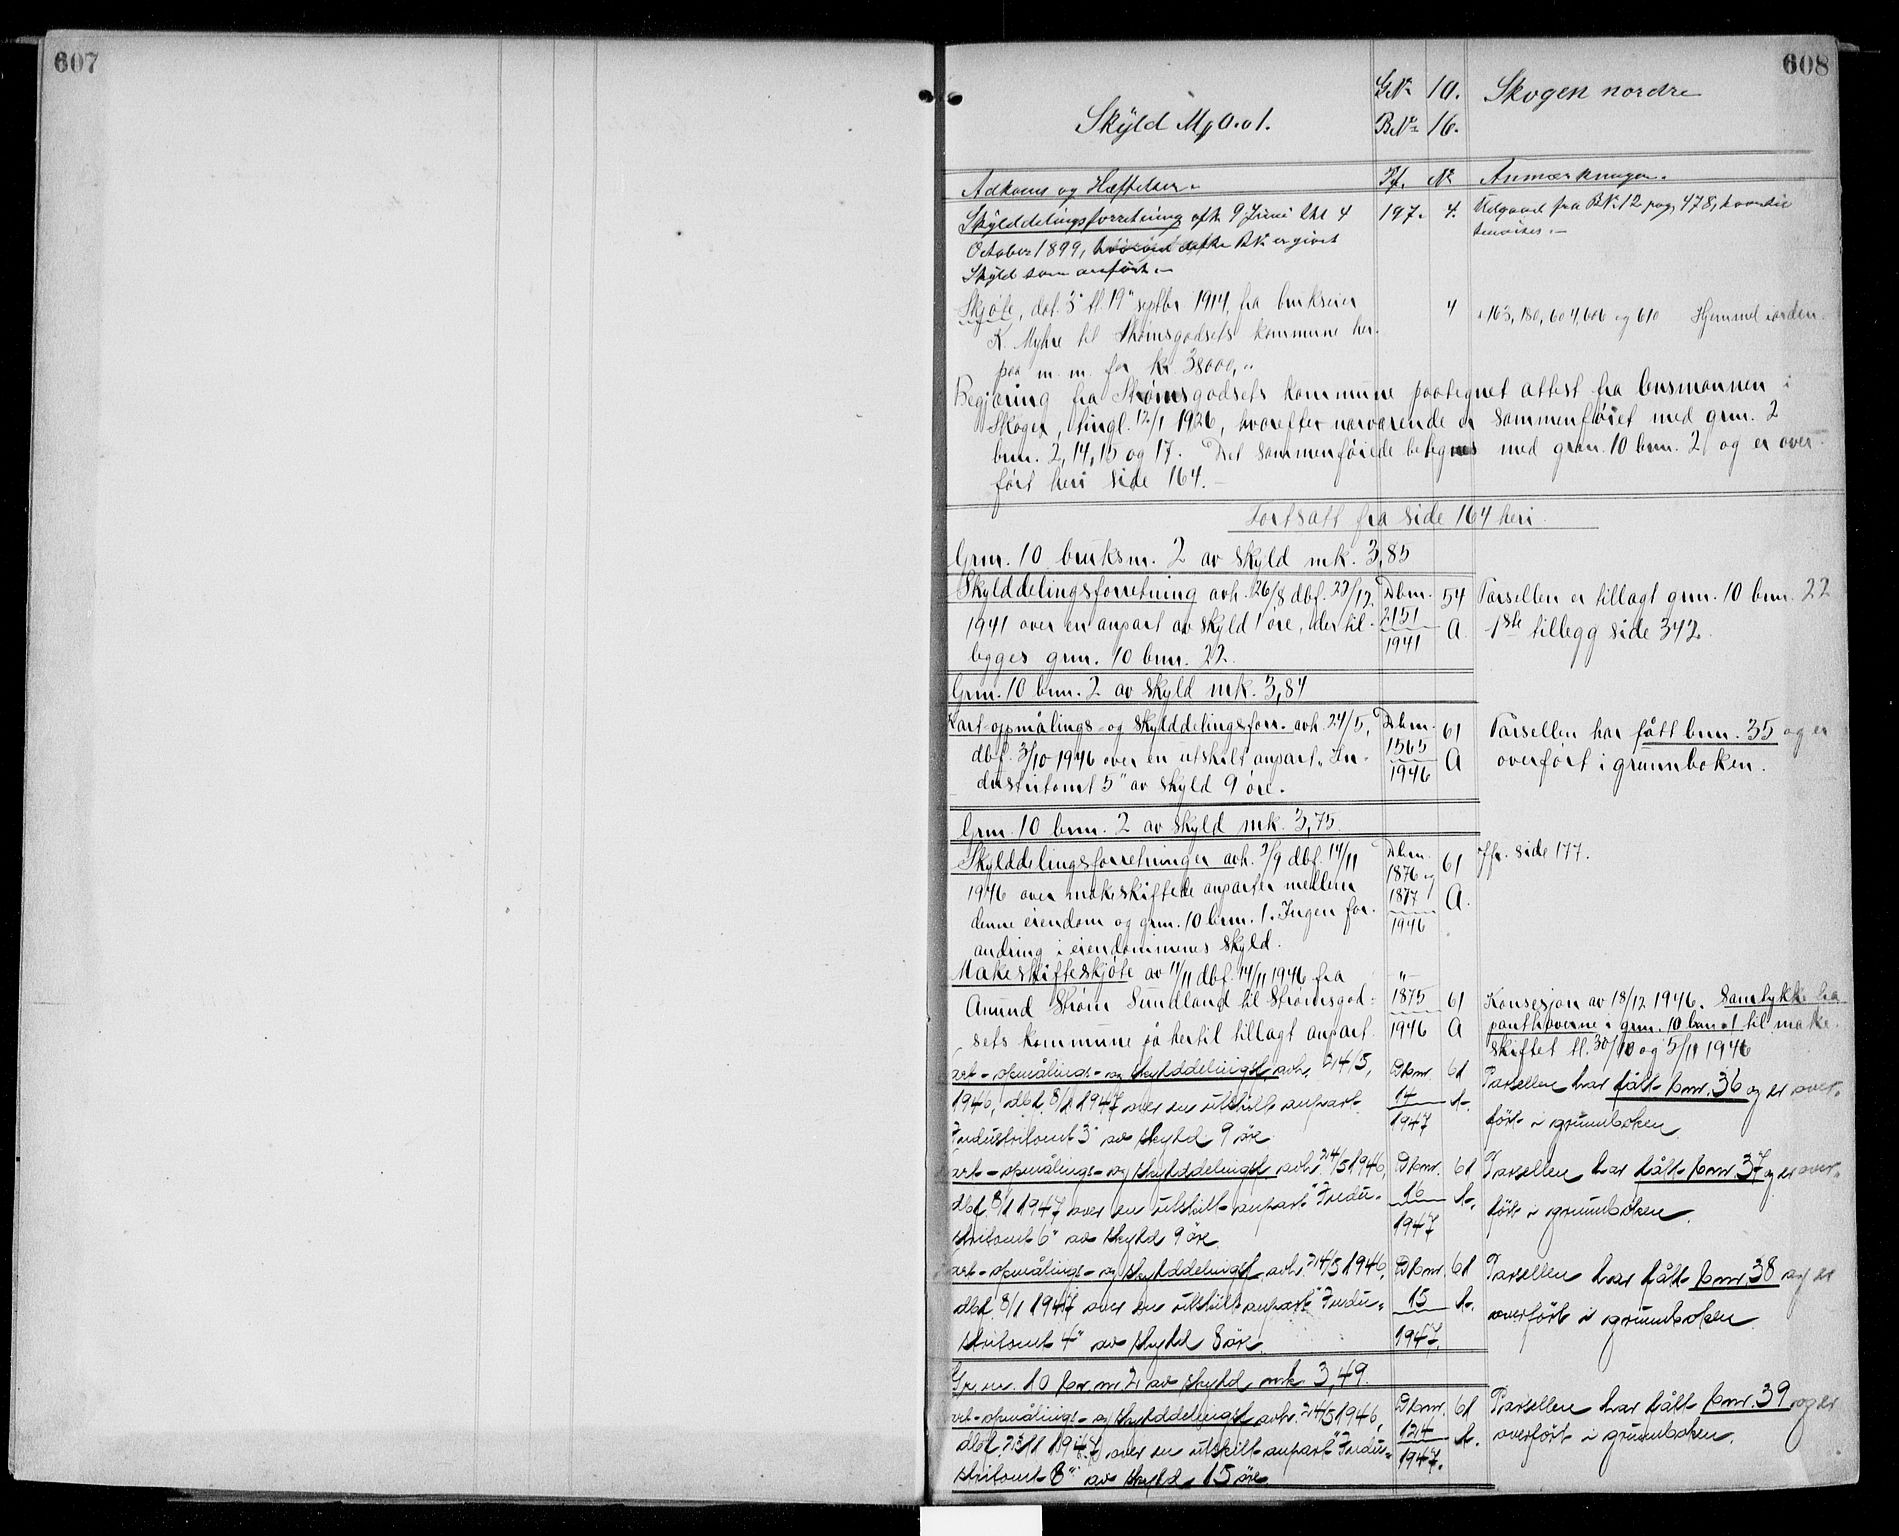 607
608
G.Nr. 10. Skogen nordre
Skyld M. 0.01.
B.Nr. 16.
Adkomst og Hæftelser. Pf. Nr. Anmærkninger.
Skylddelingsforretning afh. 9 Juni thl 4 197. 4. Udgaaet fra BNr. 12 pag. 478, hvortil
October 1899, BNr. er givet henvises.
Skyld som anført.
Skjøte, dat. 3 tl. 19 septbr 1914, fra brukseier 4 163, 180, 604, 606 og 610 Hjemmel iorden.
K. Myhre til Strømsgodsets kommune her-
paa m. m. for kr 38000,"
Begjæring fra Strømsgodsets kommune paategnet attest fra lensmannen i
Skoger, tingl. 12/1 1926, hvorefter nærværende er sammenføiet med grn. 2
brn. 2, 14, 15 og 17. Det sammenføiede betegnes med grn. 10 brn. 2 og er over-
ført heri side 164.
Fortsatt fra side 164 heri
Grn. 10 bruksn. 2 av skyld mk. 3,85
Skylddelingsforretning avh. 26/8 dbf. 23/12 Dbnr. 54 Parsellen er tillagt grn. 10 brn. 22
1941 over en anpart av skyld 1 øre, der til- 2151 A. 1ste tillegg side 342.
legges grn. 10 brn. 22. 1941
Grn. 10 brn. 2 av skyld mk. 3,84
Kart-oppmålings- og skylddelingsforr. avh. 24/5, Dbnr. 61 Parsellen har fått brn. 35 og er
dbf. 3/10 1946 over en utskilt anpart "In- 1565 A overført i grunnboken.
dustritomt 5" av skyld 9 øre. 1946
Grn. 10 brn. 2 av skyld mk. 3,75
Skylddelingsforretninger avh. 2/9 dbf. 14/11 Dbnr. 61 Jfr. side 177.
1946 over makeskiftede anparter mellem 1876 og
denne eiendom og grn. 10 brn. 1. Ingen for- 1877 A.
andring i eiendommenes skyld. 1946
Makeskifteskjøte av 11/11 dbf. 14/11 1946 fra "
Amund Strøm Sundland til Strømsgod- 1875 61 Konsesjon av 18/12 1946. Samtykke fra
sets kommune på hertil tillagt anpart. 1946 A panthaverne i grn. 10 brn. 1 til make-
skiftet tl. 30/10 og 5/11 1946
Kart-opmålings- og skylddelingsf. avh. 24/5, Dbnr. 61 Parsellen har fått bnr. 36 og er over-
1946, dbf. 8/1 1947 over en utskilt anpart 14 A. ført i grunnboken.
Industritomt 3" av skyld 9 øre 1947
Kart-opmålings- og skylddelingsf. avh. 24/5 1946, Dbnr. 61 Parsellen har fått bnr. 37 og er over-
dbf. 8/1 1947 over en utskilt anpart "Indu- 16 A. ført i grunnboken.
stritomt 6" av skyld 9 øre. 1947
Kart-opmålings- og skylddelingsf. avh. 24/5 1946, Dbnr. 61 Parsellen har fått bnr. 38 og er
dbf. 8/1 1947 over en utskilt anpart "Indu- 15 A. overført i grunnboken.
stritomt 4" av skyld 8 øre. 1947.
Gr.nr. 10 br.nr. 2 av skyld mk. 3,49.
Kart-opmålings- og skylddelingsf. avh. 24/5 1946, Dbnr. 61 Parsellen har fått bnr. 39 og er
dbf. 1947 over en utskilt anpart "Indu- 124 A. overført i grunnboken.
stritomt 8" av skyld 15 øre. 1947.